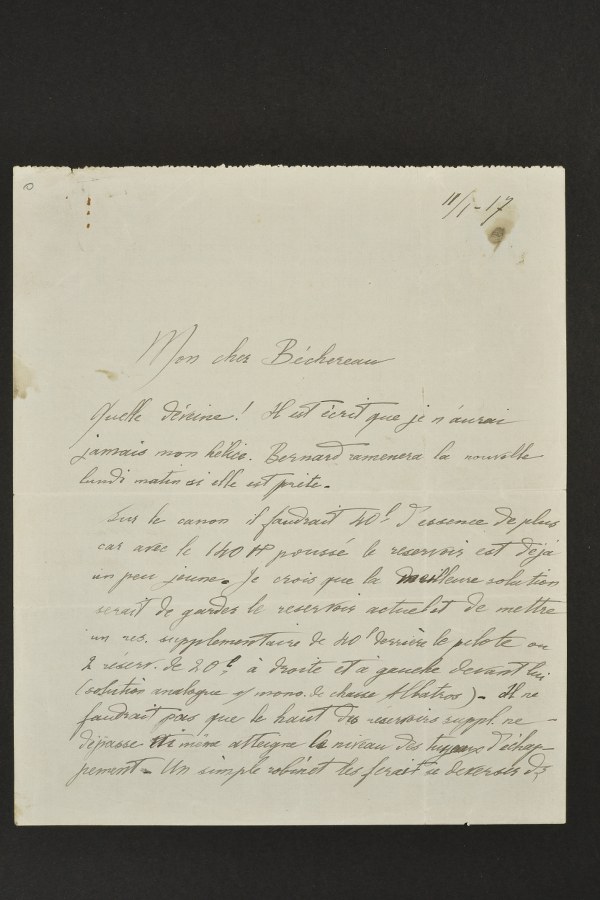 11/1-17
Mon cher Béchereau
Quelle déveine! Il est écrit que je n'aurai
jamais mon hélice. Bernard ramenera la nouvelle
lundi matin si elle est prête.
Sur le canon il faudrait 40 l d'essence de plus
car avec le 140 HP poussé le reservoir est déjà
un peu jeune. Je crois que la meilleure solution
serait de garder le reservoir actuel et de mettre
un res. supplementaire de 40 l derrière le pilote ou
2 réserv. de 20 l, à droite et a gauche devant lui
(solution analogue mono. de chasse Albatros) - Il ne
faudrait pas que le haut des réservoirs suppl. ne
dépasse ni même atteigne le niveau des tuyaux d'échap-
pement. Un simple robinet les ferait se deverser ds